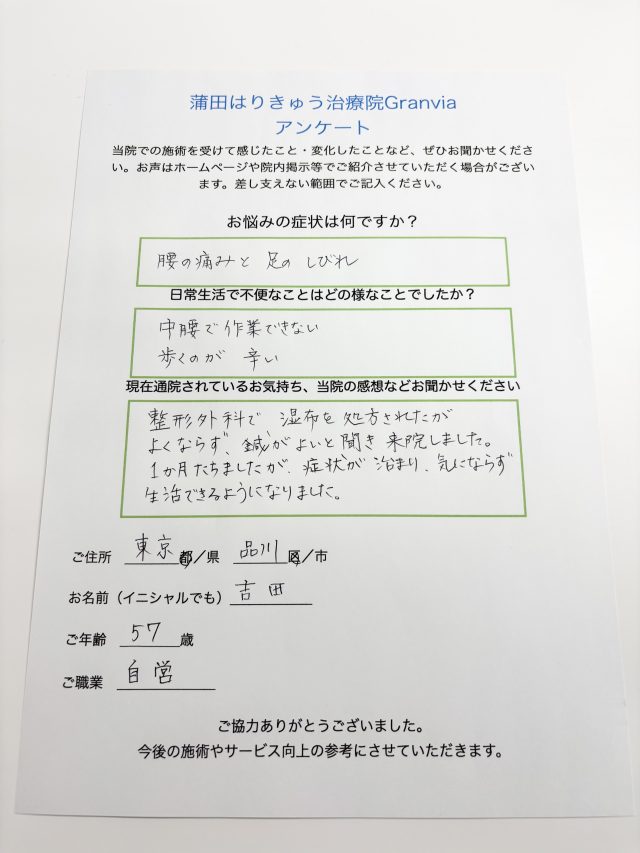 蒲田はりきゅう治療院Granvia
アンケート
当院での施術を受けて感じたこと・変化したことなど、ぜひお聞かせくださ
い。お声はホームページや院内掲示等でご紹介させていただく場合がござい
ます。差し支えない範囲でご記入ください。
お悩みの症状は何ですか？
腰の痛みと 足の しびれ
日常生活で不便なことはどの様なことでしたか？
中腰で作業できない
歩くのが 辛い
現在通院されているお気持ち、当院の感想などお聞かせください
整形外科で 湿布を処方されたが
よくならず、鍼がよいと聞き 来院しました。
1か月たちましたが、症状が治まり、気にならず
生活できるようになりました。
ご住所 東京 都／県 品川 区／市
お名前（イニシャルでも）吉田
ご年齢 57 歳
ご職業 自営
ご協力ありがとうございました。
今後の施術やサービス向上の参考にさせていただきます。